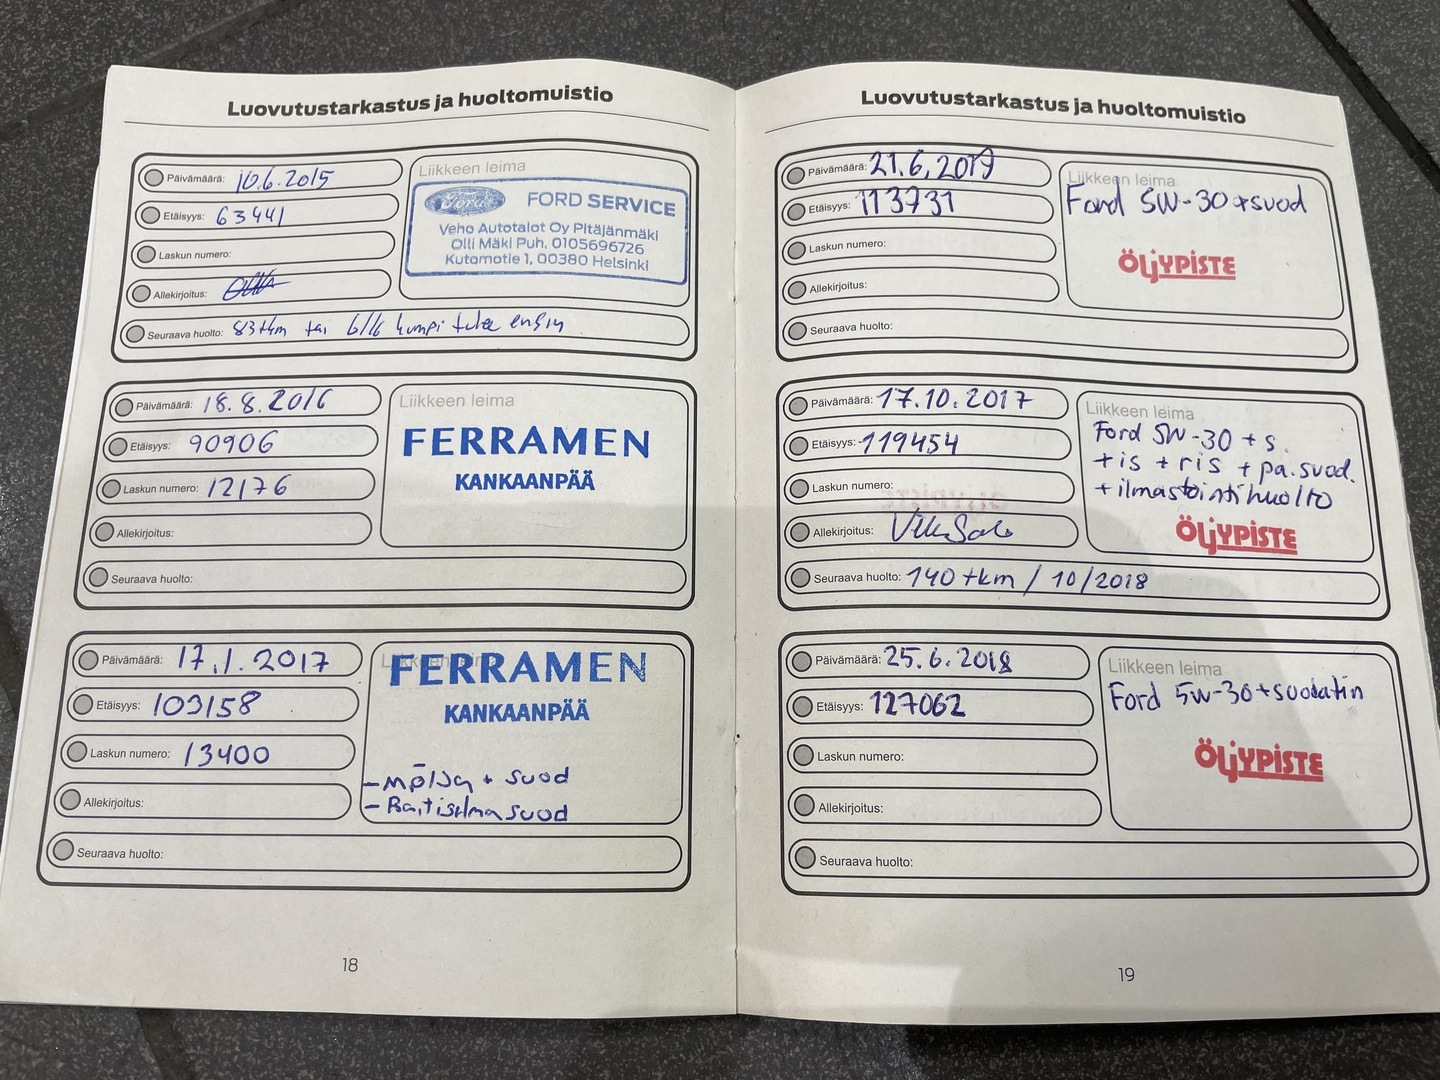 Luovutustarkastus ja huoltomuistio
Päivämäärä: 10.6.2015
Etäisyys: 63441
Laskun numero:
Allekirjoitus:
Seuraava huolto: 83tkm tai 6/16 kumpi tulee ensin
Liikkeen leima
Ford
FORD SERVICE
Veho Autotalot Oy Pitäjänmäki
Olli Mäki Puh. 0105696726
Kutomotie 1, 00380 Helsinki
Päivämäärä: 18.8.2016
Etäisyys: 90906
Laskun numero: 12176
Allekirjoitus:
Seuraava huolto:
Liikkeen leima
FERRAMEN
KANKAANPÄÄ
Päivämäärä: 17.1.2017
Etäisyys: 103158
Laskun numero: 13400
Allekirjoitus:
Seuraava huolto:
Liikkeen leima
FERRAMEN
KANKAANPÄÄ
- mölja + suod
18
Luovutustarkastus ja huoltomuistio
Päivämäärä: 21.6.2017
Etäisyys: 113731
Laskun numero:
Allekirjoitus:
Seuraava huolto:
Liikkeen leima
Ford 5W-30 + suod
ÖLJYPISTE
Päivämäärä: 17.10.2017
Etäisyys: 119454
Laskun numero:
Allekirjoitus:
Seuraava huolto: 140 tkm / 10/2018
Liikkeen leima
Ford 5W-30 + s.
+ is + ris + pa.suod.
+ ilmastointihuolto
ÖLJYPISTE
Päivämäärä: 25.6.2018
Etäisyys: 127062
Laskun numero:
Allekirjoitus:
Seuraava huolto:
Liikkeen leima
Ford 5w-30+suodatin
ÖLJYPISTE
19